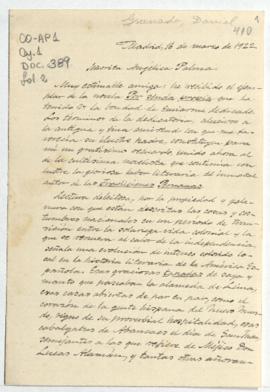 Granada, Daniel
410
CO-AP1
Cj. 1
DOC. 389
fol. 2
Madrid, 16 de marzo de 1922
Señorita Angélica Palma
Muy estimable amiga: he recibido el ejem-
plar de la novela Por senda propia que ha
tenido la bondad de enviarme dedicado.
Los términos de la dedicatoria, alusivos a
la antigua y fina amistad con que me fa-
vorecía su ilustre padre constituyen para
mí un gratísimo recuerdo unido ahora al
de la cultísima novelista que continúa con
la gloriosa labor literaria del inmortal
autor de las Tradiciones Peruanas.
Lectura deleitosa, por la propiedad y
con que están descritas las cosas y cos-
tumbres nacionales en un período de tran-
sición entre la sosegada vida colonial y la
que se resume al calor de la independencia,
señala una evolución de interés
en la historia literaria de la América Es-
pañola. Esas graciosas tapadas de saya y
manto que paseaban la alameda de Lima,
esas casas abiertas de par en par, como el
corazón de la gente hispana del nuevo mun-
do, signo de su proverbial hospitalidad, esas
cabalgatas de Amancaes el día de San Juan
semejantes a las que refiere de Méjico Don
Lucas Alamán, y tantas otras